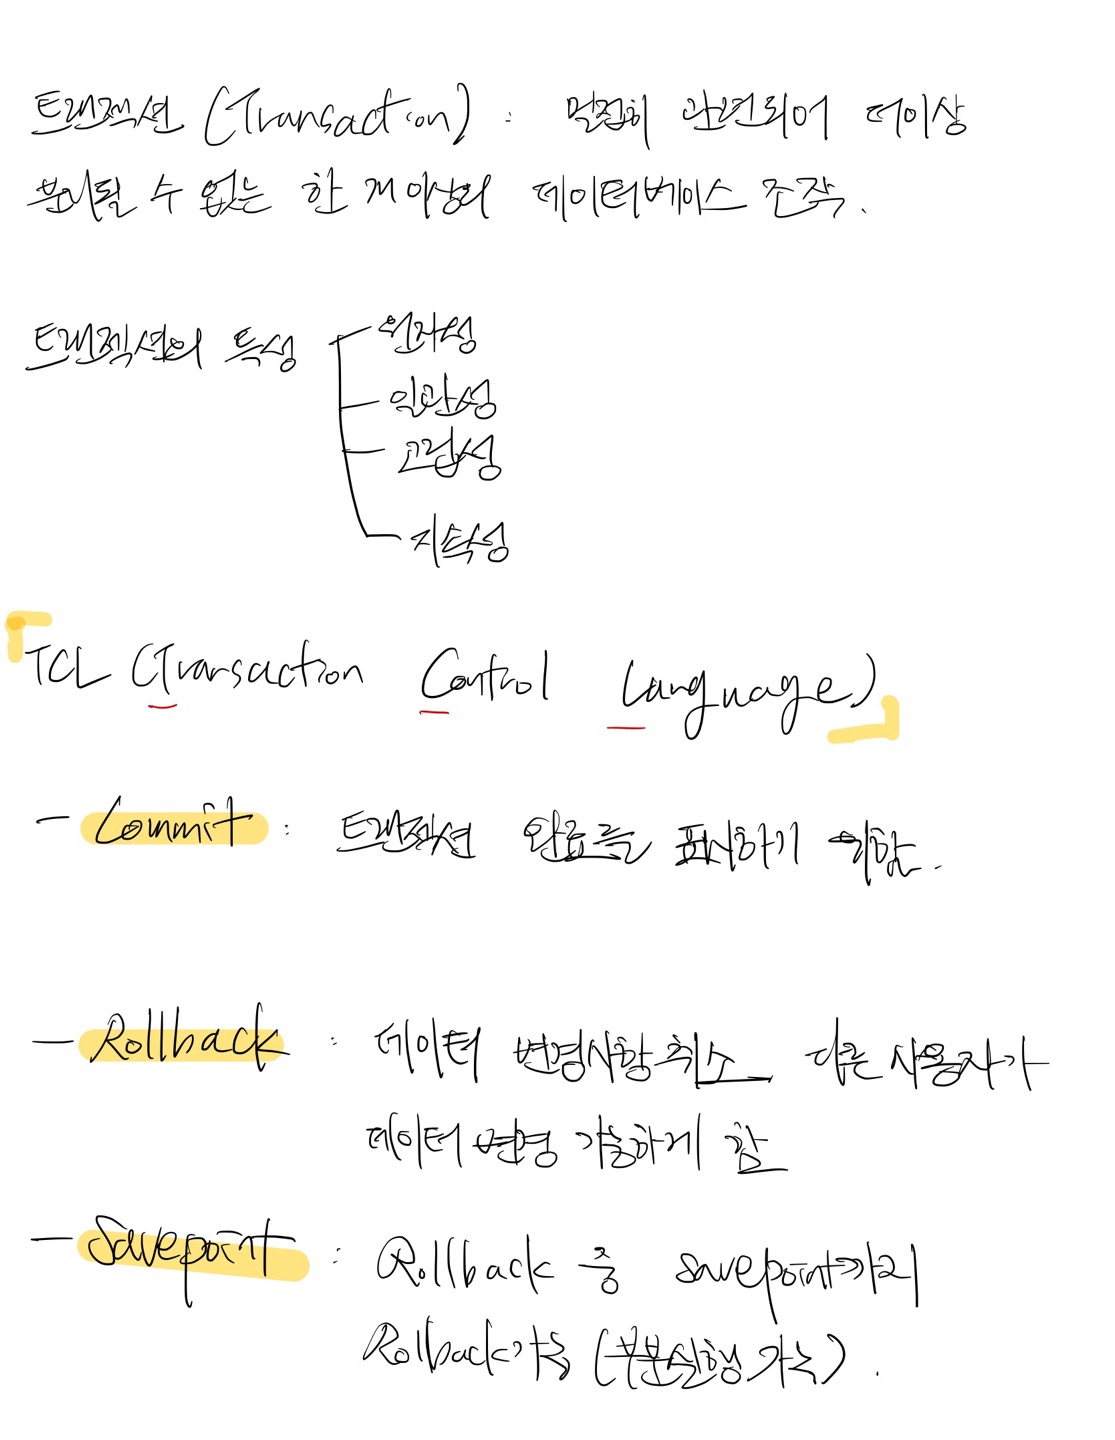 트랜젝션 (Transaction) : 밀접히 관련되어 더이상
분리될 수 없는 한 개 이상의 데이터베이스 조작.
트랜젝션의 특성
원자성
일관성
고립성
지속성
「TCL (Transaction Control Language)」
- Commit : 트랜젝션 완료를 표시하기 위함.
- Rollback : 데이터 변경사항 취소 다른 사용자가
데이터 변경 가능하게 함
- Savepoint : Rollback 중 savepoint까지
Rollback 가능 (부분실행 가능).